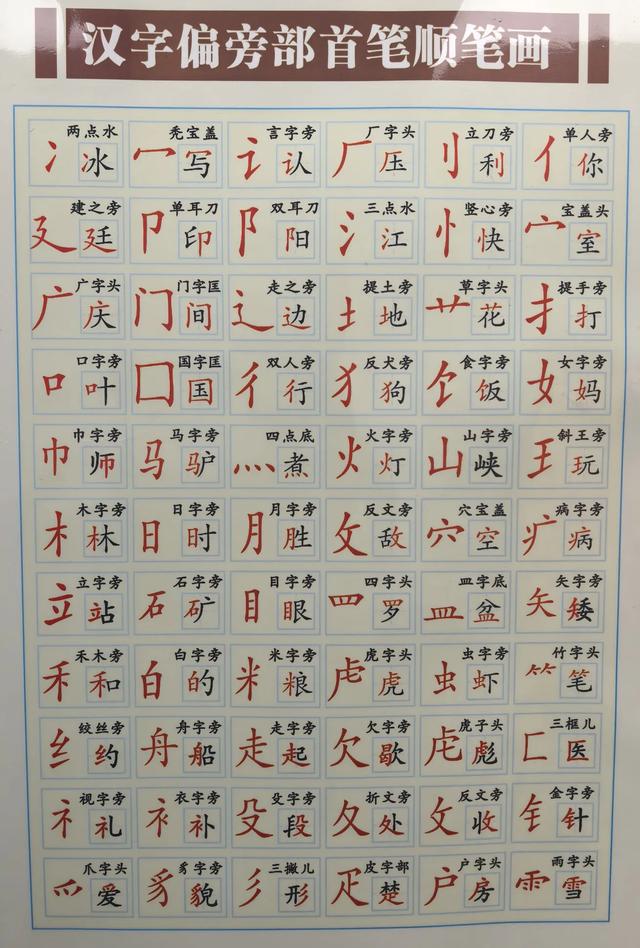 汉字偏旁部首笔顺笔画
两点水 秃宝盖 言字旁 厂字头 立刀旁 单人旁
冫 冰 冖 写 讠 认 厂 压 刂 利 亻 你
建之旁 单耳刀 双耳刀 三点水 竖心旁 宝盖头
廴 廷 卩 印 阝 阳 氵 江 忄 快 宀 室
广字头 门字匡 走之旁 提土旁 草字头 提手旁
广 庆 门 间 辶 边 土 地 艹 花 扌 打
口字旁 国字匡 双人旁 反犬旁 食字旁 女字旁
口 叶 囗 国 彳 行 犭 狗 饣 饭 女 妈
巾字旁 马字旁 四点底 火字旁 山字旁 斜王旁
巾 师 马 驴 灬 煮 火 灯 山 峡 王 玩
木字旁 日字旁 月字旁 反文旁 穴宝盖 病字旁
木 林 日 时 月 胜 攵 敌 穴 空 疒 病
立字旁 石字旁 目字旁 四字头 皿字底 矢字旁
立 站 石 矿 目 眼 罒 罗 皿 盆 矢 矮
禾木旁 白字旁 米字旁 虎字头 虫字旁 竹字头
禾 和 白 的 米 粮 虍 虎 虫 虾 ⺮ 笔
绞丝旁 舟字旁 走字旁 欠字旁 虎子头 三框儿
纟 约 舟 船 走 起 欠 歇 虍 彪 匚 医
视字旁 衣字旁 殳字旁 折文旁 反文旁 金字旁
礻 礼 衤 补 殳 段 夂 处 攵 收 钅 针
爪字头 豸字旁 三撇儿 皮字部 户字头 雨字头
爫 爱 豸 貌 彡 形 疋 楚 户 房 雨 雪